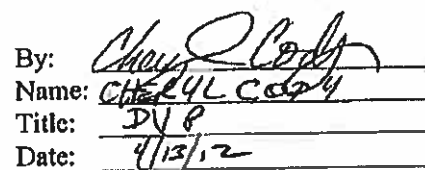 By: Cheryl Cody
Name: CHERYL CODY
Title: DVP
Date: 4/13/12